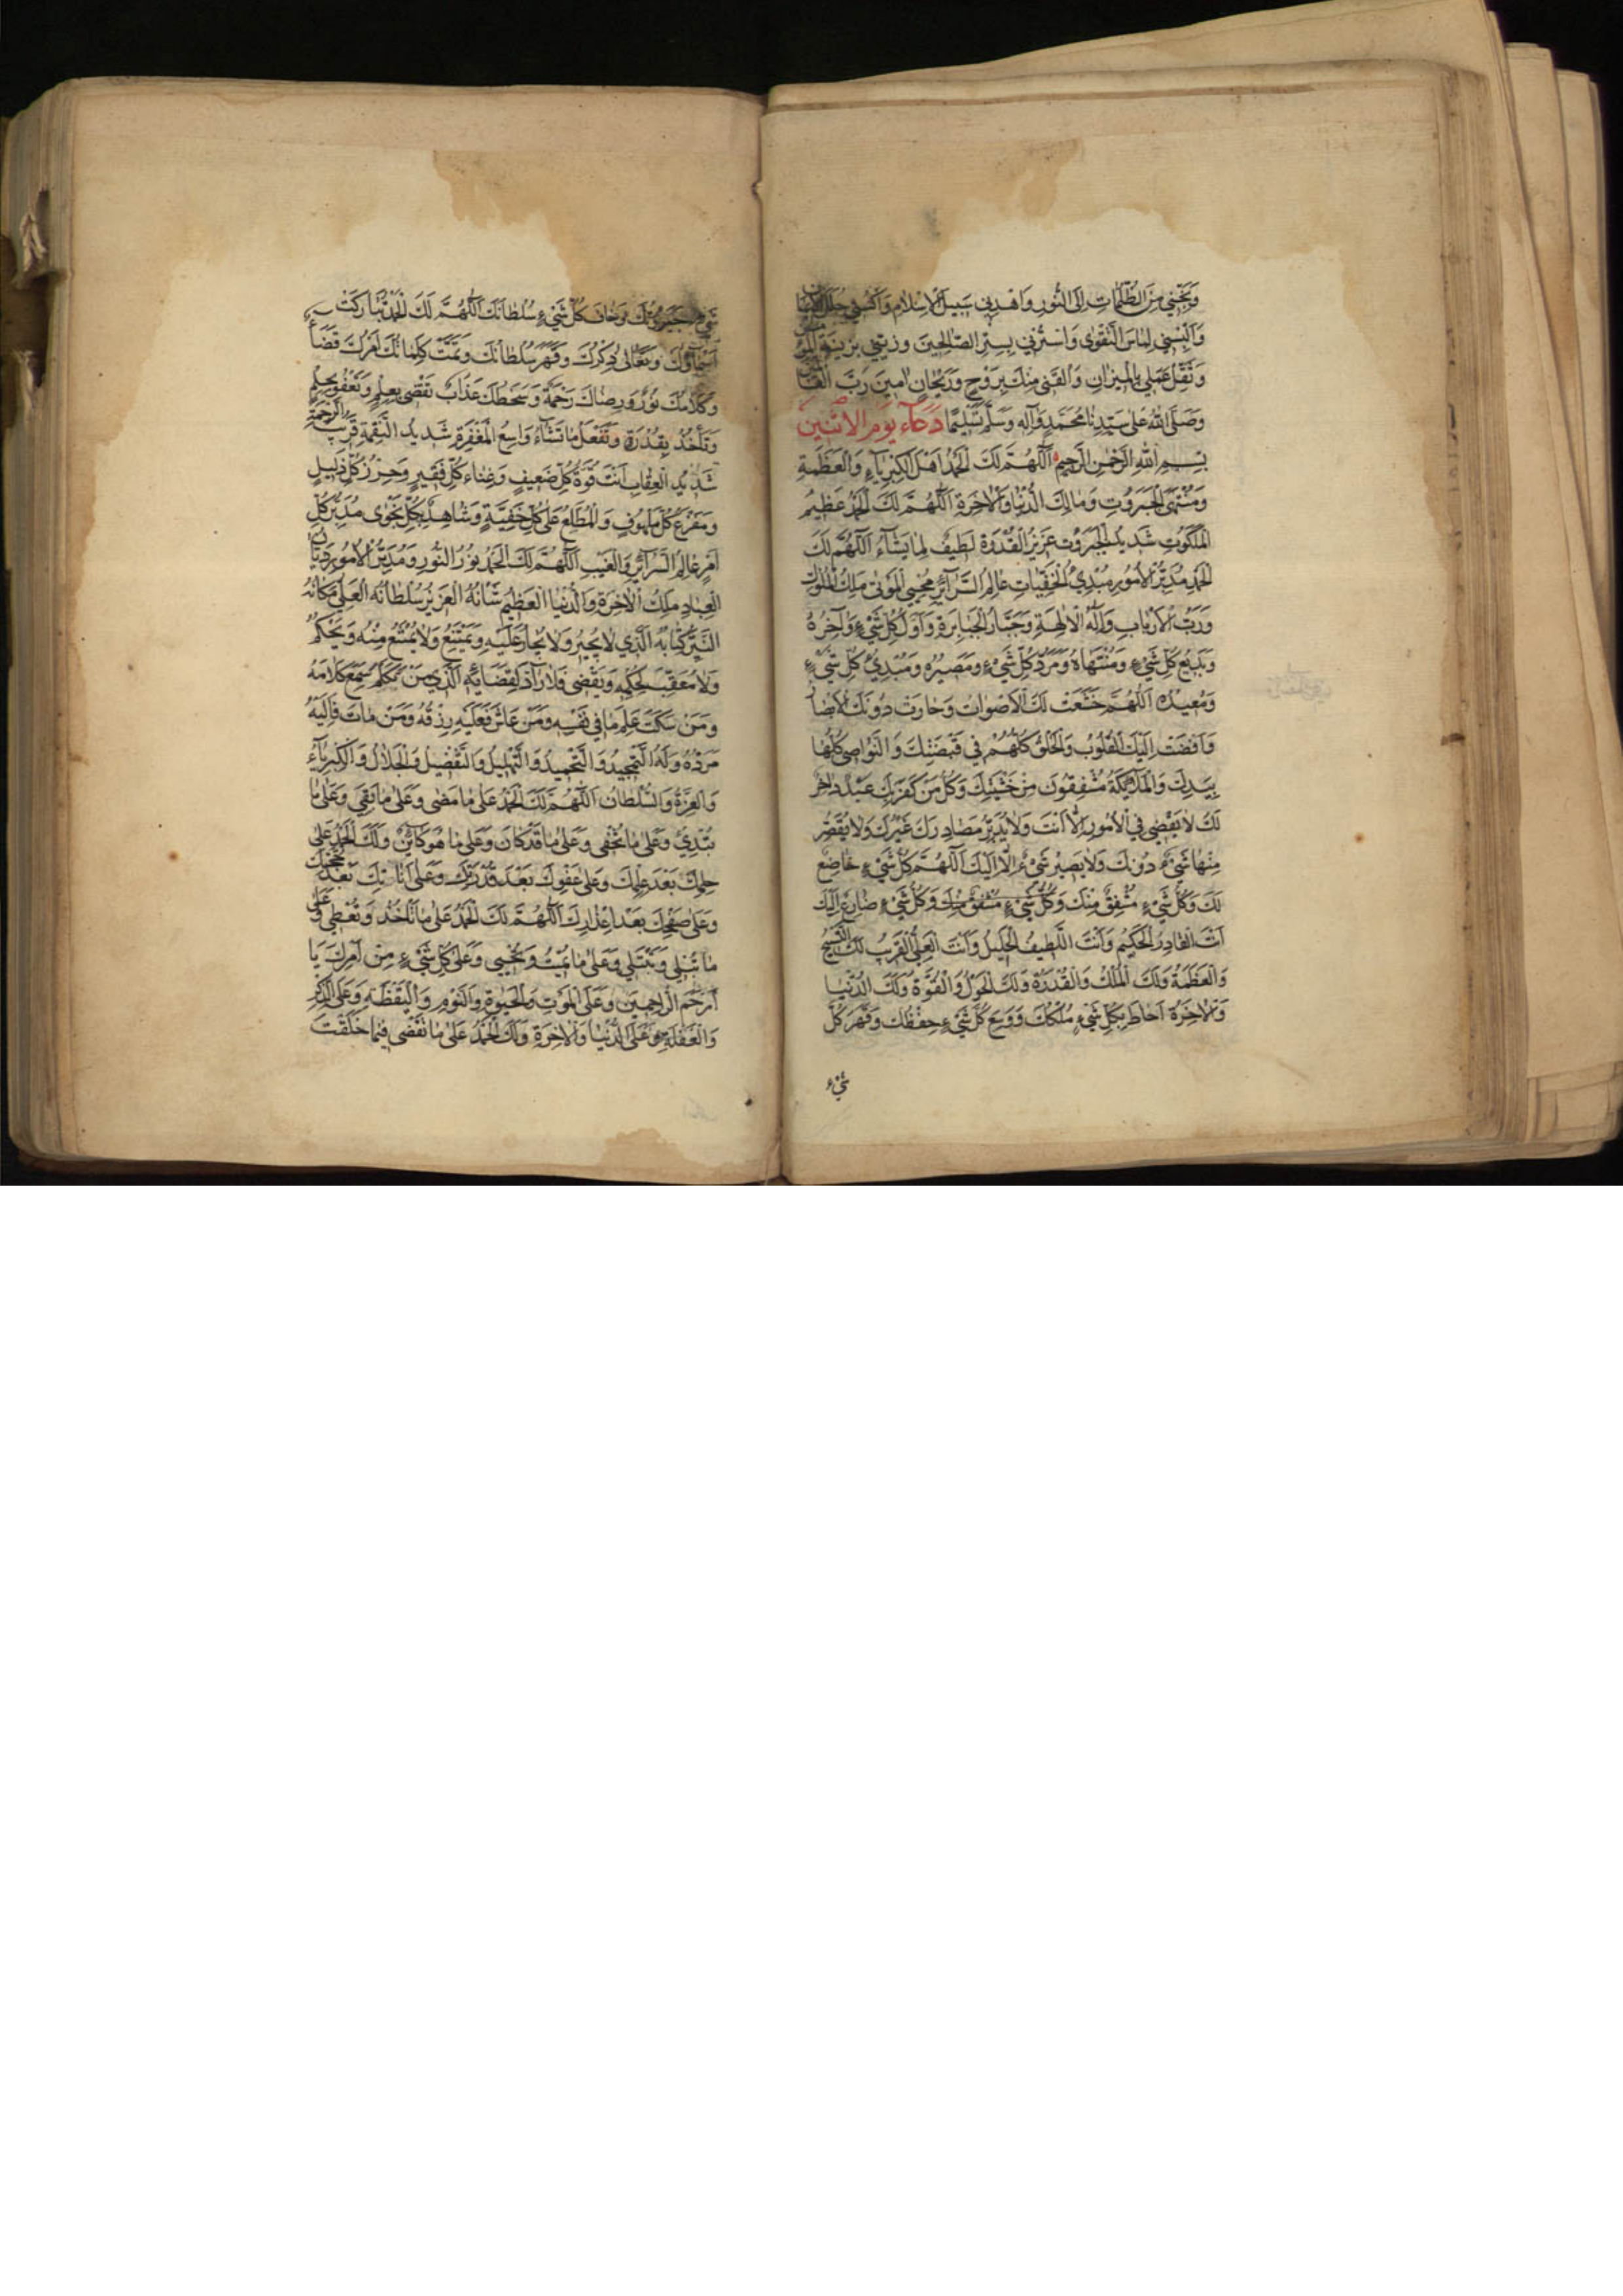 وَنَجِّنِي مِنَ الظُّلُمَاتِ اِلَى النُّورِ وَاهْدِنِي سَبِيلَ الْاِسْلَامِ وَاكْسُنِي حُلَلَ
وَاَلْبِسْنِي لِبَاسَ التَّقْوٰى وَاسْتُرْنِي بِسِتْرِ الصَّالِحِينَ وَزَيِّنِّي بِزِينَةِ
وَثَقِّلْ عَمَلِي بِالْمِيزَانِ وَالْقَنِي مِنْكَ بِرَوْحٍ وَرَيْحَانٍ اٰمِينَ رَبَّ
وَصَلَّى اللهُ عَلٰى سَيِّدِنَا مُحَمَّدٍ وَآلِهِ وَسَلَّمَ تَسْلِيمًا دُعَاء يَوْم الاثْنَيْنِ
بِسْمِ اللهِ الرَّحْمٰنِ الرَّحِيمِ اَللّٰهُمَّ لَكَ الْحَمْدُ اَهْلَ الْكِبْرِيَآءِ وَالْعَظَمَةِ
وَمُنْتَهَى الْجَبَرُوتِ وَمَالِكَ الدُّنْيَا وَالْاٰخِرَةِ اَللّٰهُمَّ لَكَ الْحَمْدُ عَظِيمُ
الْمَلَكُوتِ شَدِيدُ الْجَبَرُوتِ عَزِيزُ الْقُدْرَةِ لَطِيفٌ لِمَا يَشَآءُ اَللّٰهُمَّ لَكَ
الْحَمْدُ مُدَبِّرُ الْاُمُورِ مُبْدِئُ الْخَفِيَّاتِ عَالِمُ السَّرَآئِرِ مُحْيِي الْمَوْتٰى مَلِكُ الْمُلُوكِ
وَرَبُّ الْاَرْبَابِ وَاِلٰهُ الْاٰلِهَةِ وَجَبَّارُ الْجَبَابِرَةِ وَاَوَّلُ كُلِّ شَيْءٍ وَاٰخِرُهُ
وَبَدِيعُ كُلِّ شَيْءٍ وَمُنْتَهَاهُ وَمَرَدُّ كُلِّ شَيْءٍ وَمَصِيرُهُ وَمُبْدِئُ كُلِّ شَيْءٍ
وَمُعِيدُهُ اَللّٰهُمَّ خَشَعَتْ لَكَ الْاَصْوَاتُ وَحَارَتْ دُونَكَ الْاَبْصَا
وَاَفْضَتْ اِلَيْكَ الْقُلُوبُ وَالْخَلْقُ كُلُّهُمْ فِي قَبْضَتِكَ وَالنَّوَاصِي كُلُّهَا
بِيَدِكَ وَالْمَلَآئِكَةُ مُشْفِقُونَ مِنْ خَشْيَتِكَ وَكُلُّ مَنْ كَفَرَ بِكَ عَبْدٌ دَاخِرٌ
لَكَ لَا يَقْضِي فِي الْاُمُورِ اِلَّا اَنْتَ وَلَا يُدَبِّرُ مَصَادِرَكَ غَيْرُكَ وَلَا يُقَصِّرُ
مِنْهَا شَيْءٌ دُونَكَ وَلَا يَصِيرُ شَيْءٌ اِلَّا اِلَيْكَ اَللّٰهُمَّ كُلُّ شَيْءٍ خَاضِعٌ
لَكَ وَكُلُّ شَيْءٍ مُشْفِقٌ مِنْكَ وَكُلُّ شَيْءٍ مُشْفِقٌ مِنْكَ وَكُلُّ شَيْءٍ ضَارِعٌ اِلَيْكَ
اَنْتَ الْقَادِرُ الْحَكِيمُ وَاَنْتَ اللَّطِيفُ الْجَلِيلُ وَاَنْتَ الْعَلِيُّ الْقَرِيبُ لَكَ التَّسْبِيحُ
وَالْعَظَمَةُ وَلَكَ الْمُلْكُ وَالْقُدْرَةُ وَلَكَ الْحَوْلُ وَالْقُوَّةُ وَلَكَ الدُّنْيَا
وَالْاٰخِرَةُ اَحَاطَ بِكُلِّ شَيْءٍ مُلْكُكَ وَوَسِعَ كُلَّ شَيْءٍ حِفْظُكَ وَقَهَرَ كُلَّ
شَيْءٍ
شَيْءٍ جَبَرُوتُكَ وَخَافَ كُلُّ شَيْءٍ سُلْطَانَكَ اَللّٰهُمَّ لَكَ الْحَمْدُ تَبَارَكَتْ
اَسْمَآؤُكَ وَتَعَالٰى ذِكْرُكَ وَقَهَرَ سُلْطَانُكَ وَتَمَّتْ كَلِمَاتُكَ اَمْرُكَ قَضَآءٌ
وَكَلَامُكَ نُورٌ وَرِضَاكَ رَحْمَةٌ وَسَخَطُكَ عَذَابٌ تَقْضِي بِعِلْمٍ وَتَعْفُو بِحِلْمٍ
وَتَأْخُذُ بِقُدْرَةٍ وَتَفْعَلُ مَا تَشَآءُ وَاسِعُ الْمَغْفِرَةِ شَدِيدُ النِّقْمَةِ قَرِيبُ الرَّحْمَةِ
شَدِيدُ الْعِقَابِ اَنْتَ قُوَّةُ كُلِّ ضَعِيفٍ وَغِنَاءُ كُلِّ فَقِيرٍ وَحِرْزُ كُلِّ ذَلِيلٍ
وَمَفْزَعُ كُلِّ مَلْهُوفٍ وَالْمُطَّلِعُ عَلٰى كُلِّ خَفِيَّةٍ وَشَاهِدُ كُلِّ نَجْوٰى مُدَبِّرُ كُلِّ
اَمْرٍ عَالِمُ السَّرَآئِرِ وَالْغَيْبِ اَللّٰهُمَّ لَكَ الْحَمْدُ نُورُ النُّورِ وَمُدَبِّرُ الْاُمُورِ دَيَّانُ
الْعِبَادِ مَلِكُ الْاٰخِرَةِ وَالدُّنْيَا الْعَظِيمُ شَأْنُهُ الْعَزِيزُ سُلْطَانُهُ الْعَلِيُّ مَكَانُهُ
النَّيِّرُ كِتَابُهُ الَّذِي لَا يُجِيرُ وَلَا يُجَارُ عَلَيْهِ وَيَمْتَنِعُ وَلَا يُمْتَنَعُ مِنْهُ وَيَحْكُمُ
وَلَا مُعَقِّبَ لِحُكْمِهِ وَيَقْضِي فَلَا رَآدَّ لِقَضَآئِهِ الَّذِي مَنْ تَكَلَّمَ سَمِعَ كَلَامَهُ
وَمَنْ سَكَتَ عَلِمَ مَا فِي نَفْسِهِ وَمَنْ عَاشَ فَعَلَيْهِ رِزْقُهُ وَمَنْ مَاتَ فَاِلَيْهِ
مَرَدُّهُ وَلَهُ التَّمْجِيدُ وَالتَّحْمِيدُ وَالتَّهْلِيلُ وَالتَّفْضِيلُ وَالْجَلَالُ وَالْكِبْرِيَآءُ
وَالْعِزَّةُ وَالسُّلْطَانُ اَللّٰهُمَّ لَكَ الْحَمْدُ عَلٰى مَا مَضٰى وَعَلٰى مَا بَقِيَ وَعَلٰى مَا
تُبْدِئُ وَعَلٰى مَا تُخْفِي وَعَلٰى مَا قَدْ كَانَ وَعَلٰى مَا هُوَ كَائِنٌ وَلَكَ الْحَمْدُ عَلٰى
حِلْمِكَ بَعْدَ عِلْمِكَ وَعَلٰى عَفْوِكَ بَعْدَ قُدْرَتِكَ وَعَلٰى اَنَاتِكَ بَعْدَ حُجَّتِكَ
وَعَلٰى صَفْحِكَ بَعْدَ اِعْذَارِكَ اَللّٰهُمَّ لَكَ الْحَمْدُ عَلٰى مَا تَأْخُذُ وَتُعْطِي وَعَلٰى
مَا تُبْلِي وَتَبْتَلِي وَعَلٰى مَا تُمِيتُ وَتُحْيِي وَعَلٰى كُلِّ شَيْءٍ مِنْ اَمْرِكَ يَا
اَرْحَمَ الرَّاحِمِينَ وَعَلَى الْمَوْتِ وَالْحَيٰوةِ وَالنَّوْمِ وَالْيَقْظَةِ وَعَلَى الذِّكْرِ
وَالْغَفْلَةِ وَعَلَى الدُّنْيَا وَالْاٰخِرَةِ وَلَكَ الْحَمْدُ عَلٰى مَا تَقْضِي فِيمَا خَلَقْتَ